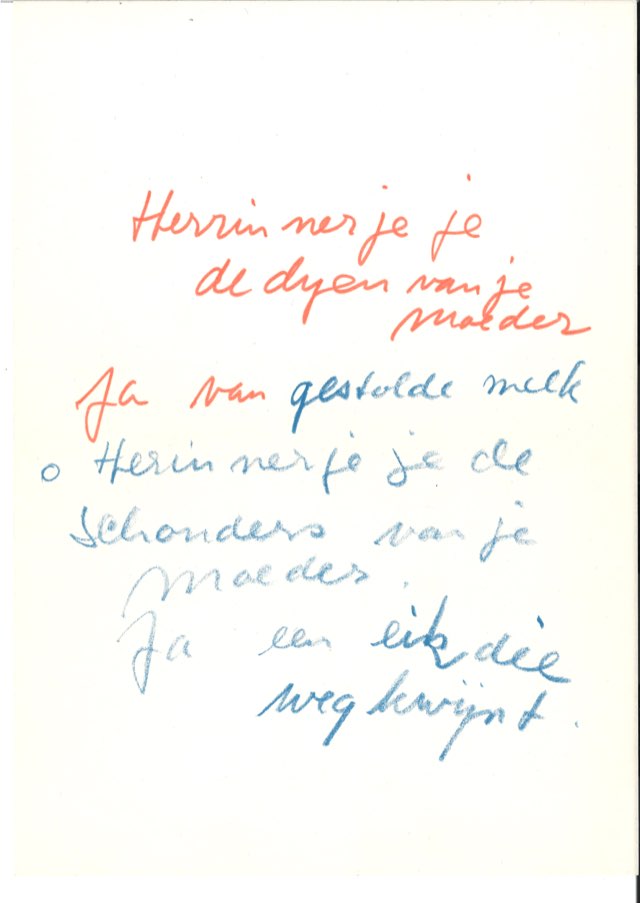 Herrinnerje je
de dyen van je
moeder
Ja van gestolde melk
o Herinnerje je de
schonders van je
moeder.
Ja een eik die
wegkwijnt.